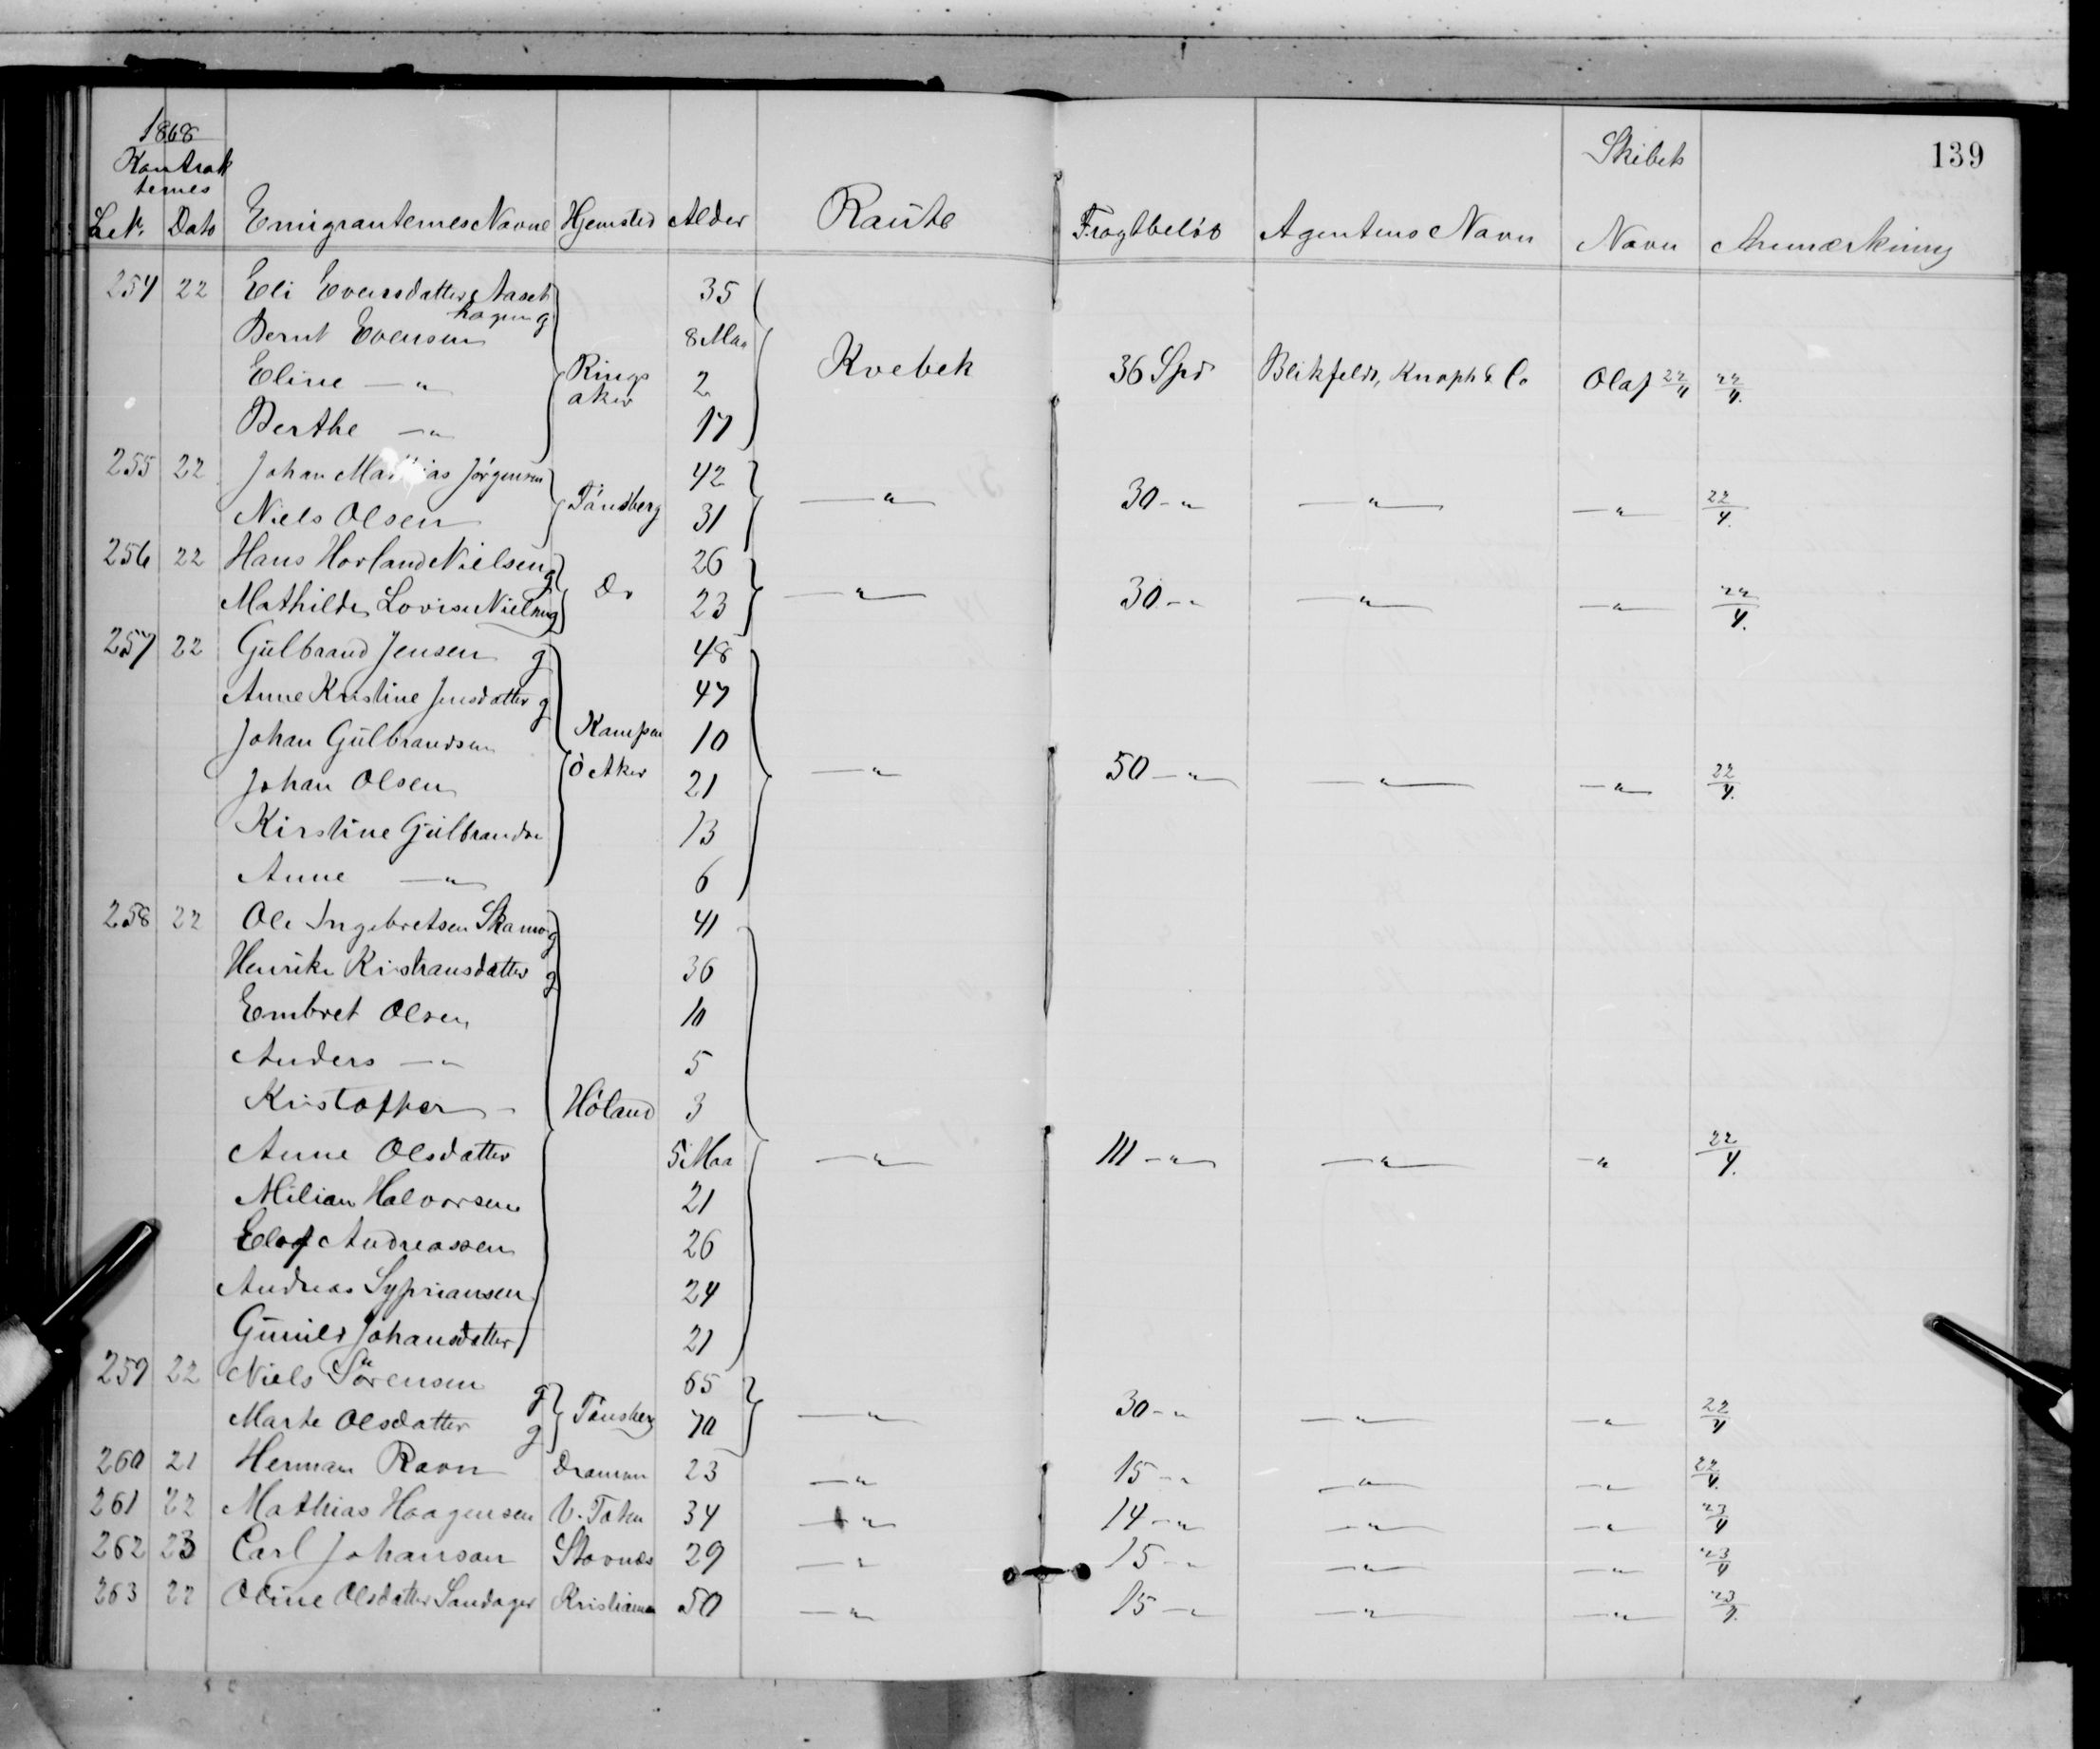 1868
Kontrak
ternes
Skibets
139
L.N. Dato Emigranternes Navne Hjemsted Alder Raute Fragtbeløb Agentens Navn Navn Anmærkning
254 22 Eli Evensdatter Aaset 35
hagen g
Bernt Evensen 8 Maa
Eline —"— Rings 2 Kvebek 36 Spd Blikfeldt, Knoph & Co Olaf 22/4 22/4.
aker
Berthe —"— 17
255 22 Johan Mathias Jørgensen 42
Niels Olsen Tönsberg 31 —"— 30 —"— —"— —"— 22/4.
256 22 Hans Horland Nielsen g 26
Mathilde Lovise Nielsen g Do 23 —"— 30 —"— —"— —"— 22/4.
257 22 Gulbrand Jensen g 48
Anne Kristine Jensdatter g 47
Johan Gulbrandsen Kampen 10
Johan Olsen Ö Aker 21 —"— 50 —"— —"— —"— 22/4.
Kirstine Gulbrandsn 13
Anne —"— 6
258 22 Ole Ingebretsen Skamo g 41
Henrike Kristiansdatter g 36
Embret Olsen 10
Anders —"— 5
Kristoffer - Höland 3
Anne Olsdatter 5 Maa —"— 111 —"— —"— —"— 22/4.
Milian Halvorsen 21
Elof Andreassen 26
Andreas Sypriansen 24
Gunild Johansdatter 21
259 22 Niels Sörensen g 65
Marte Olsdatter g Tönsberg 70 —"— 30 —"— —"— —"— 22/4
260 21 Herman Ravn Dramen 23 —"— 15 —"— —"— —"— 22/4.
261 22 Mathias Haagensen V. Toten 34 —"— 14 —"— —"— —"— 23/4
262 23 Carl Johanson Stavnæs 29 —"— 15 —"— —"— —"— 23/4
263 22 Oline Olsdatter Sandager Kristiania 50 —"— 15 —"— —"— —"— 23/4.